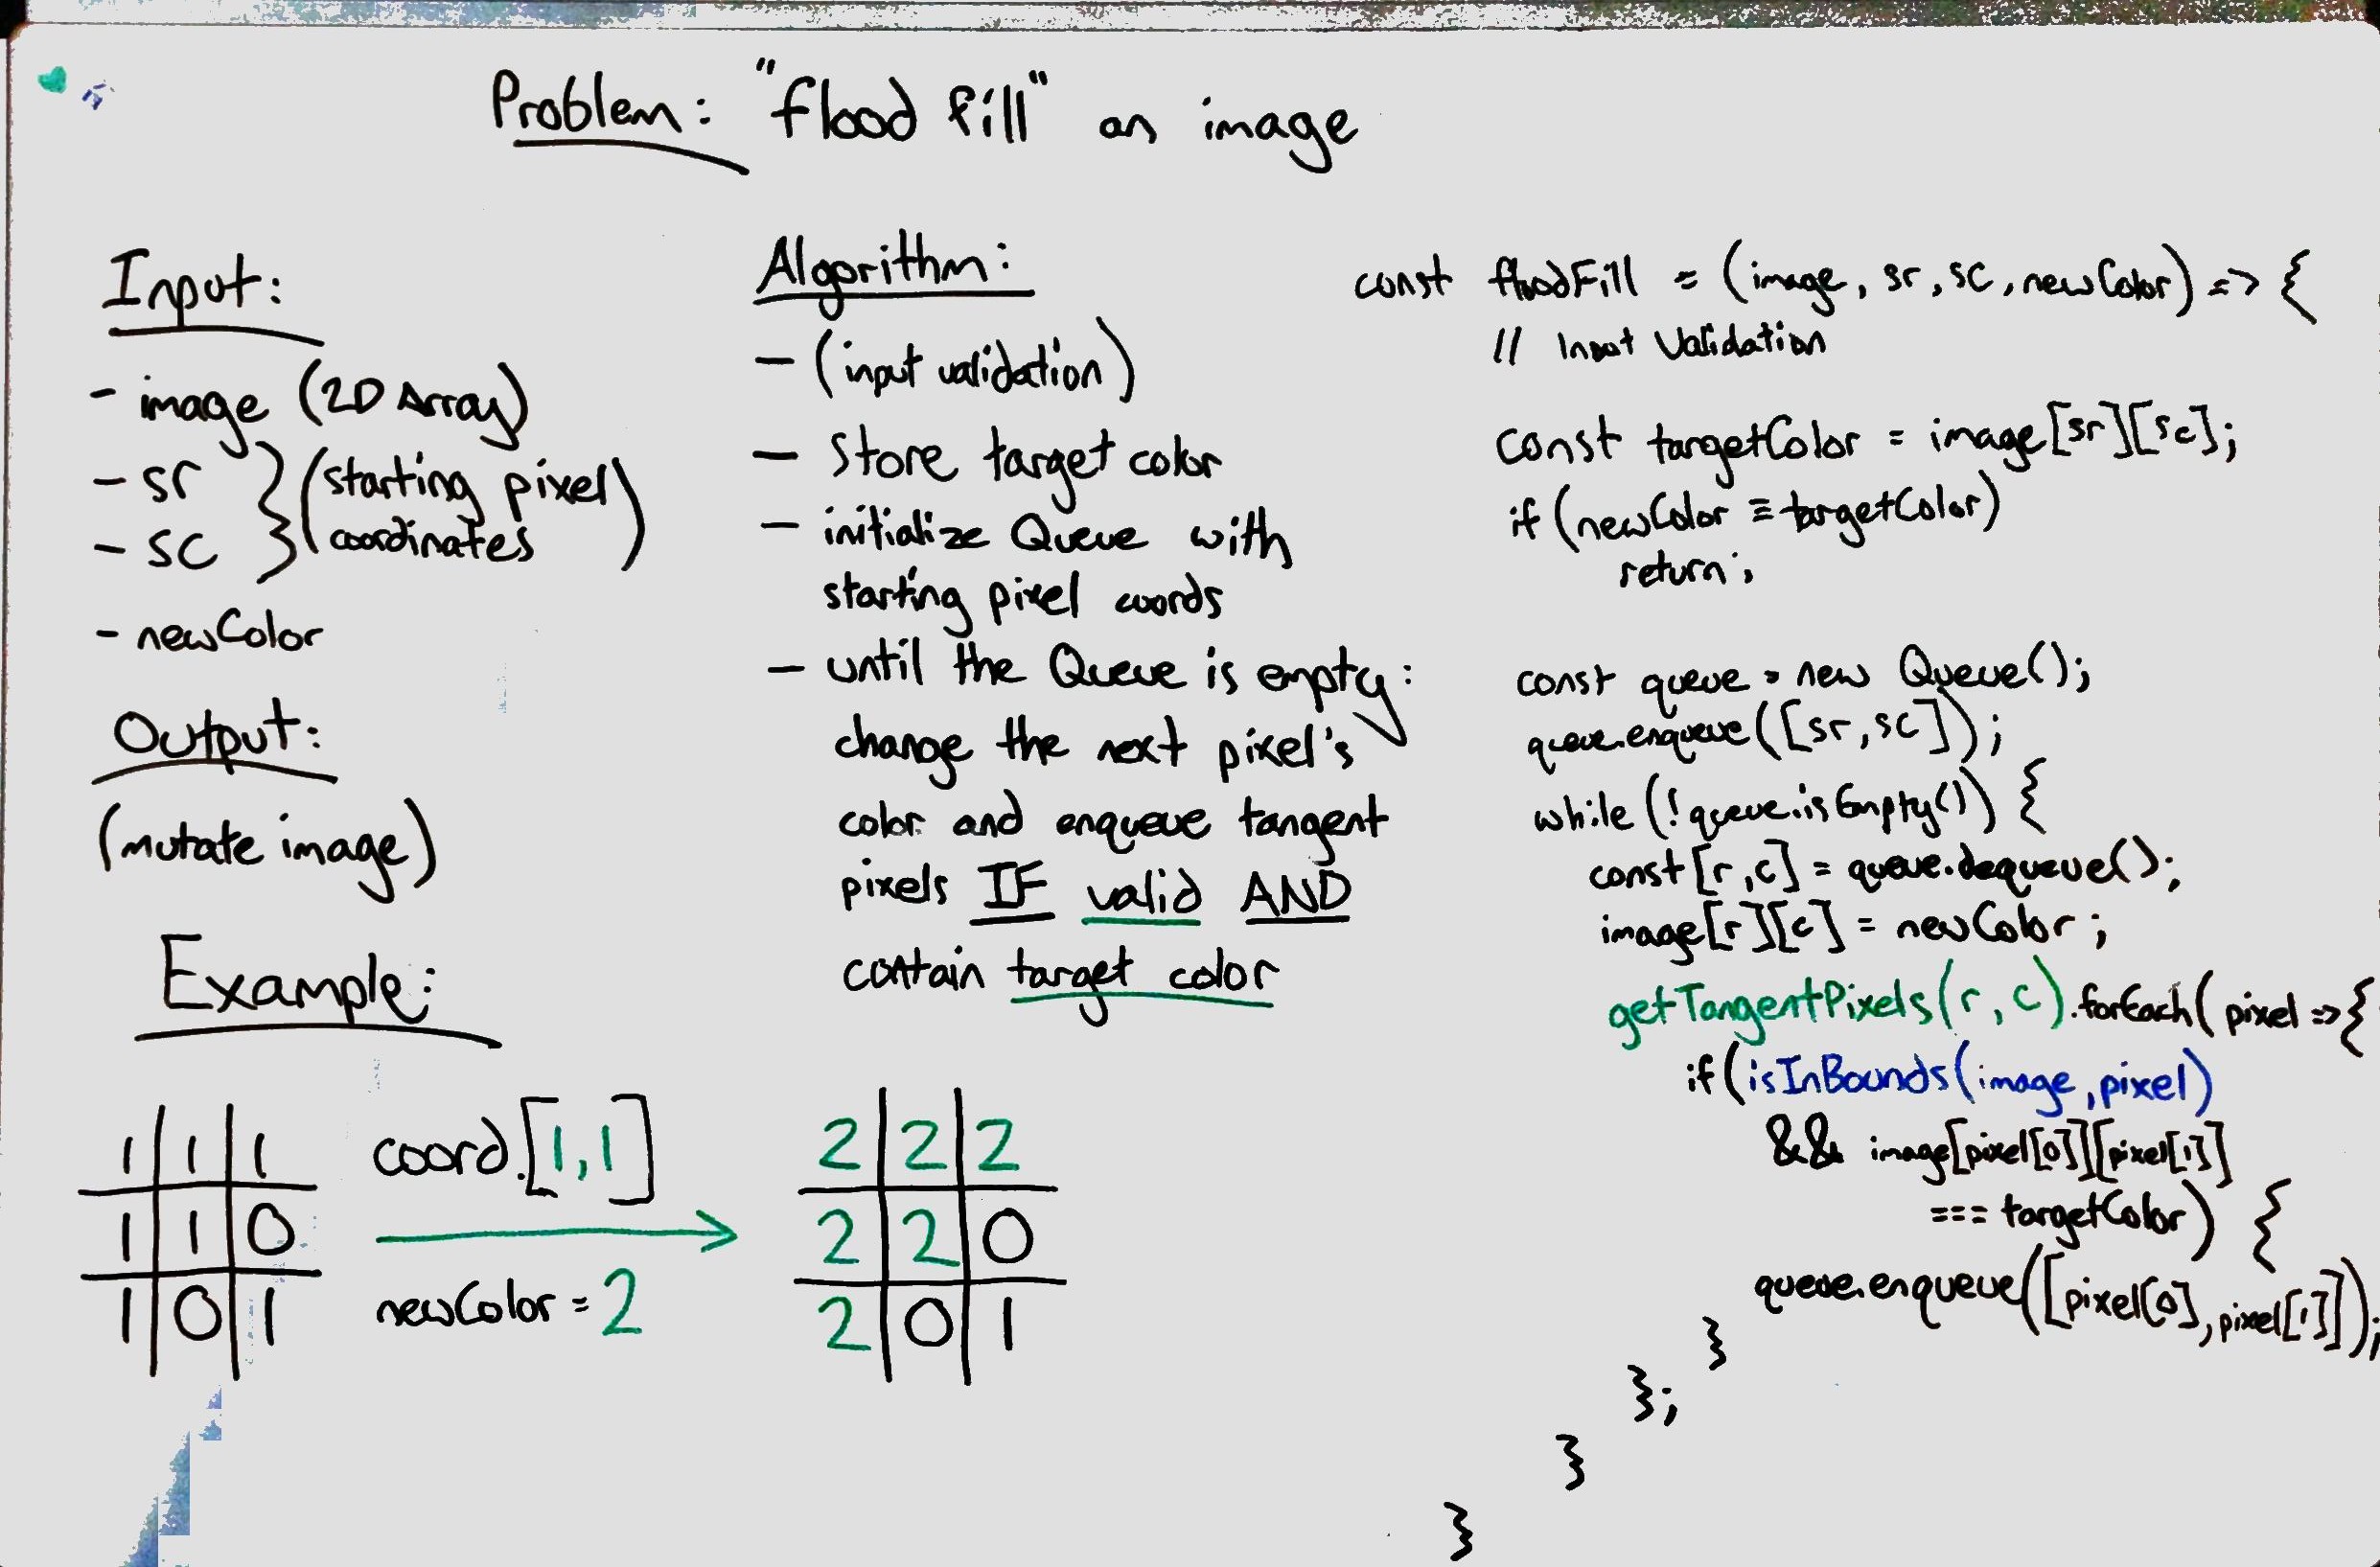 Problem: "flood fill" an image
Input:
- image (2D Array)
- sr } (starting pixel
- sc } coordinates)
- newColor
Output:
(mutate image)
Algorithm:
- (input validation)
- store target color
- initialize Queue with
starting pixel coords
- until the Queue is empty:
change the next pixel's
color and enqueue tangent
pixels IF valid AND
contain target color
Example:
1 1 1
1 1 0
1 0 1
coord. [1,1]
newColor = 2
2 2 2
2 2 0
2 0 1
const floodFill = (image, sr, sc, newColor) => {
// Input Validation
const targetColor = image[sr][sc];
if (newColor === targetColor)
return;
const queue = new Queue();
queue.enqueue([sr, sc]);
while (!queue.isEmpty()) {
const [r,c] = queue.dequeue();
image[r][c] = newColor;
getTangentPixels(r, c).forEach(pixel => {
if (isInBounds(image, pixel)
&& image[pixel[0]][pixel[1]]
=== targetColor) {
queue.enqueue([pixel[0], pixel[1]]);
}
};
}
}